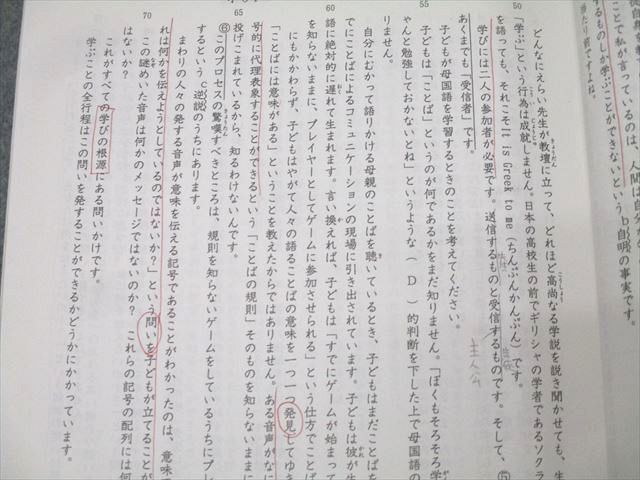 間自身が
とで私が言っているのは、
するものしか学ぶことができないというb自明の事実です。
当たり前ですよね。
50
どんなにえらい先生が教壇に立って、どれほど高尚なる学説を説き聞かせても、生
きょうだん
こうしょう
「学ぶ」という行為は成就しません。日本の高校生の前でギリシャの学者であるソクラ
を語っても、それこそIt is Greek to me（ちんぷんかんぷん）です。
学びには二人の参加者が必要です。送信するものと受信するものです。そして、⑤
主人公
あくまでも「受信者」です。
子どもが母国語を学習するときのことを考えてください。
55
子どもは「ことば」というのが何であるかをまだ知りません。「ぼくもそろそろ学
ゃんと勉強しておかないとね」というような（　D　）的判断を下した上で母国語の
りません。
自分にむかって語りかける母親のことばを聴いているとき、子どもはまだことばを
でにことばによるコミュニケーションの現場に引き出されています。子どもは彼が生
60
語に絶対的に遅れて生まれます。言い換えれば、子どもは「すでにゲームが始まって
を知らないままに、プレイヤーとしてゲームに参加させられる」という仕方でことば
にもかかわらず、子どもはやがて人々の語ることばの意味を一つ一つ発見してゆき
「ことばには意味がある」ということを教えたからではありません。ある音声がなに
号的に代理表象することができるという「ことばの規則」そのものを知らないままに
65
投げこまれているから、知るわけないんです。
⑥このプロセスの驚嘆すべきところは、規則を知らないゲームをしているうちにプレ
きょうたん
するというc逆説のうちにあります。
まわりの人々の発する音声が意味を伝える記号であることがわかったのは、「意味
れは何かを伝えようとしているのではないか？」という問いを子どもが立てることが
70
この謎めいた音声は何かのメッセージではないのか？　これらの記号の配列には何
はないか？
これがすべての学びの根源にある問いかけです。
学ぶことの全行程はこの問いを発することができるかどうかにかかっています。